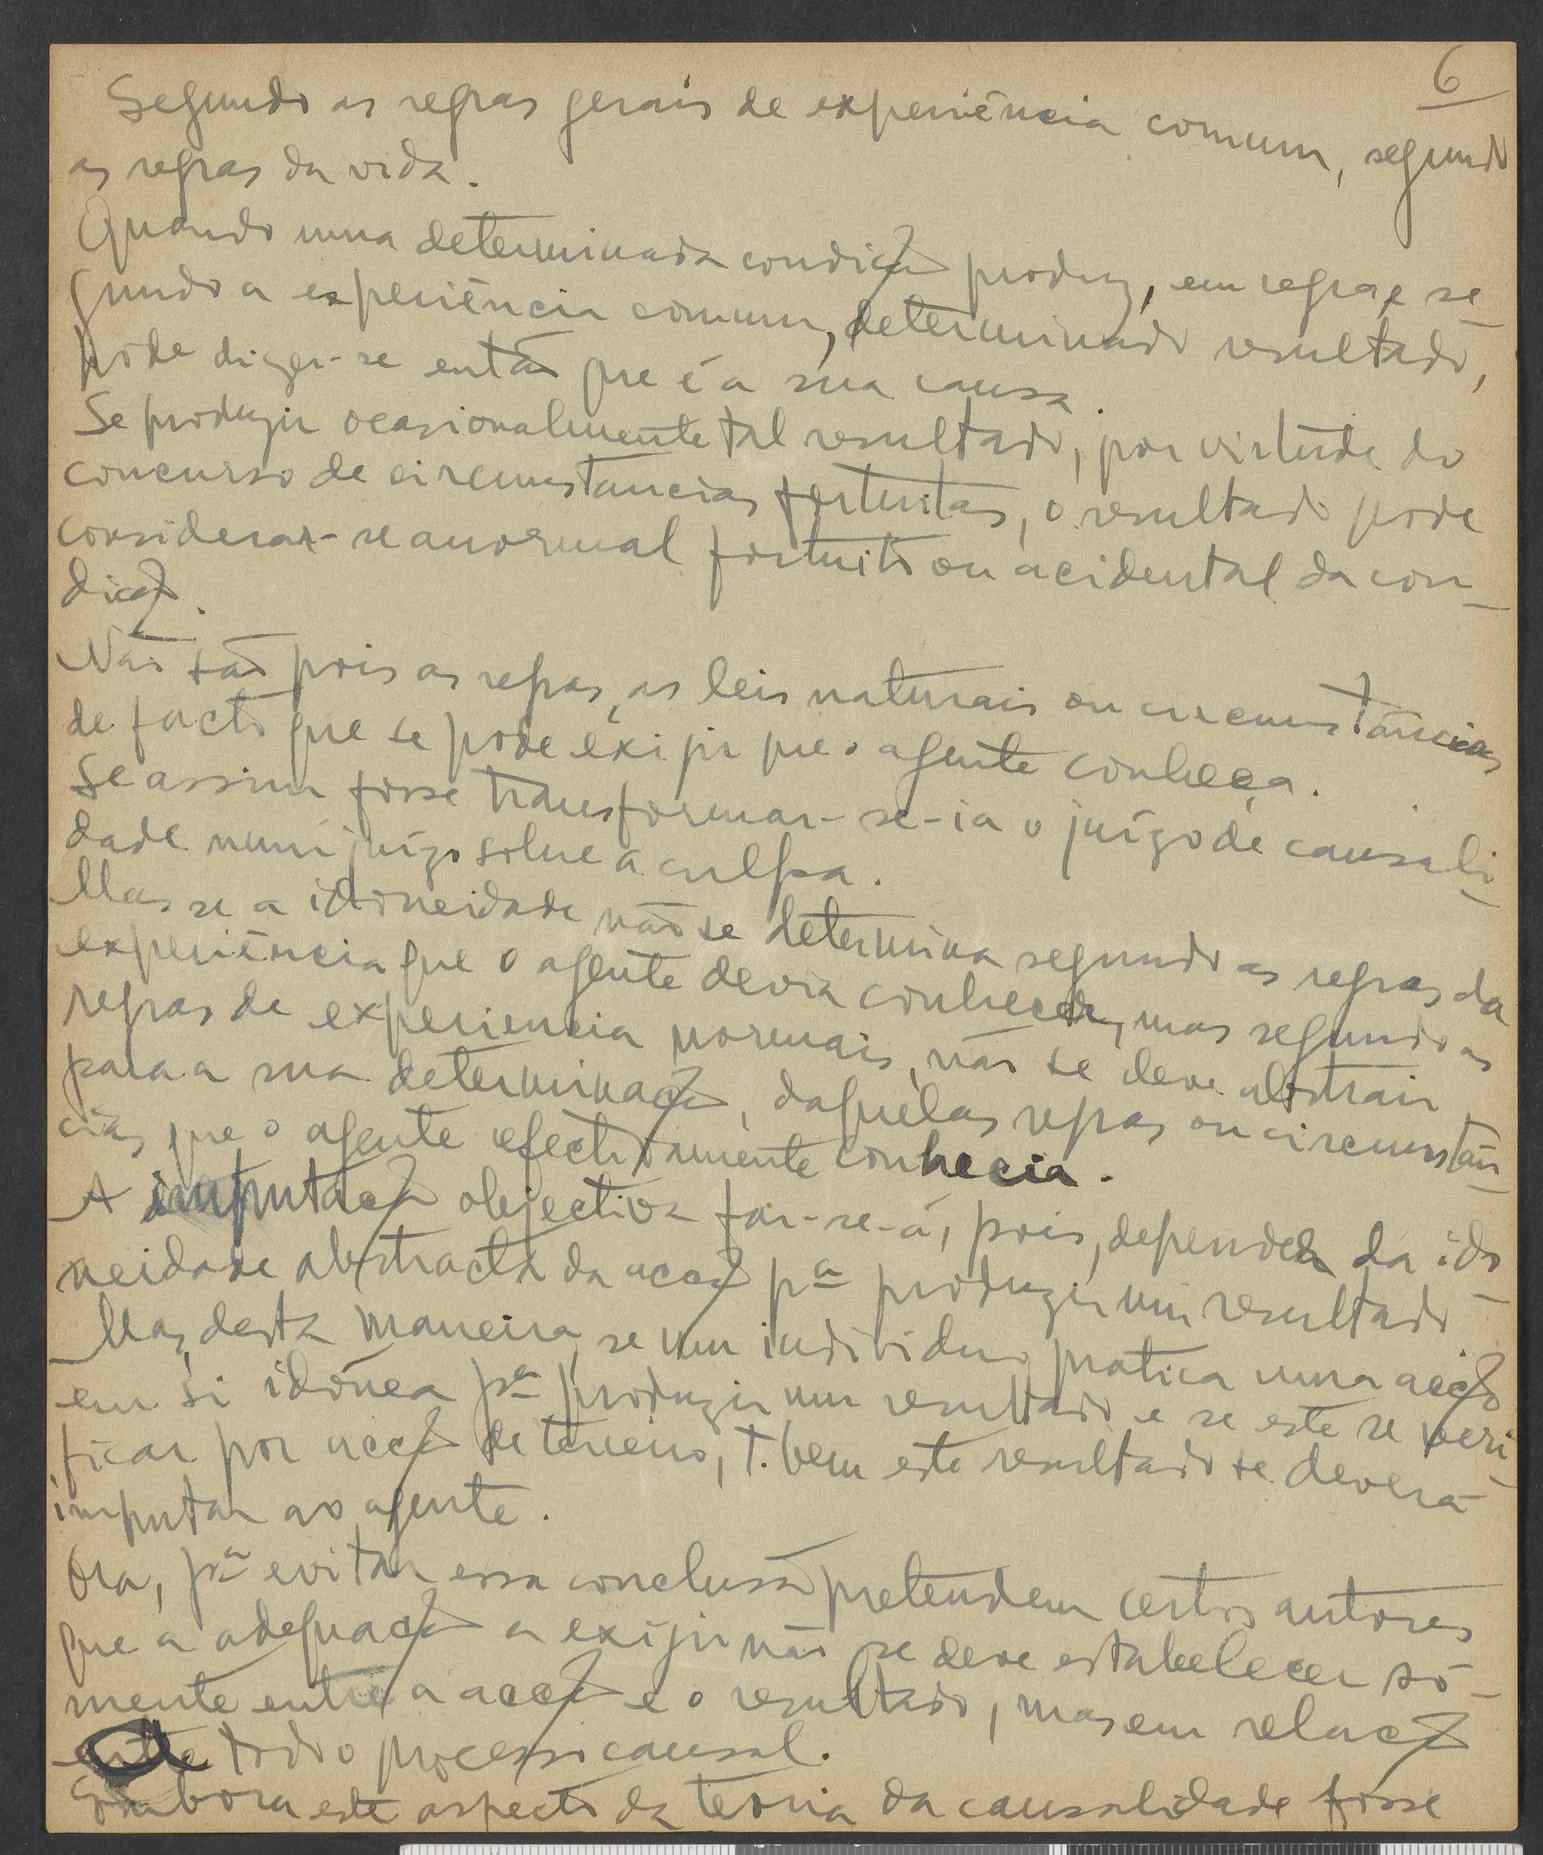 6
Segundo as regras gerais de experiência comum, segundo
as regras da vida.
Quando uma determinada condição produz, em regra e se-
gundo a experiência comum, determinado resultado,
pode dizer-se então que é a sua causa.
Se produzir ocasionalmente tal resultado, por virtude do
concurso de circunstancias fortuitas, o resultado pode
considerar-se anormal fortuito ou acidental da con-
dição.
Não são pois as regras, as leis naturais ou circunstâncias
de facto que se pode exijir que o agente conheça.
Se assim fosse transformar-se-ia o juízo de causali-
dade num juízo sobre a culpa.
Mas se a idoneidade não se determina segundo as regras da
experiência que o agente devia conhecer, mas segundo as
regras de experiencia normais, não se deve abstrair
para a sua determinação, daquelas regras ou circunstân-
cias que o agente efectivamente conhecia.
A imputação objectiva far-se-á, pois, depender da ido-
neidade abstracta da acção pª produzir um resultado
Mas, desta maneira, se um individuo pratica uma acção
em si idónea pª produzir um resultado e se este se veri-
ficar por acção de terceiro, t.bem este resultado se deverá
imputar ao agente.
Ora, pª evitar essa conclusão pretendem certos autores
que a adequação a exijir não se deve estabelecer sò-
mente entre a acção e o resultado, mas em relação
a todo o processo causal.
Embora este aspecto da teoria da causalidade fosse